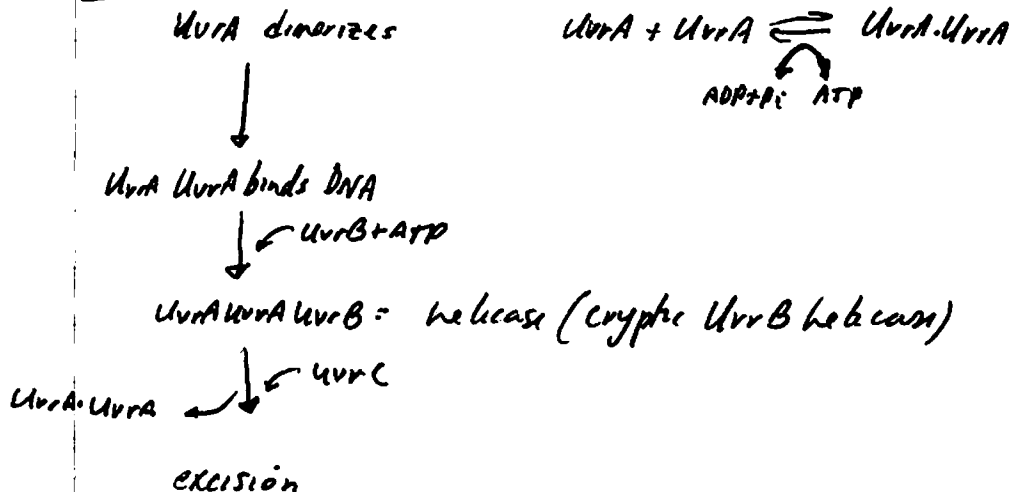 UvrA dimerizes
UvrA + UvrA ⇌ UvrA·UvrA
ADP+Pi ATP
UvrA UvrA binds DNA
UvrB+ATP
UvrAUvrAUvrB = helicase (cryptic UvrB helicase)
UvrC
UvrA·UvrA
excisión